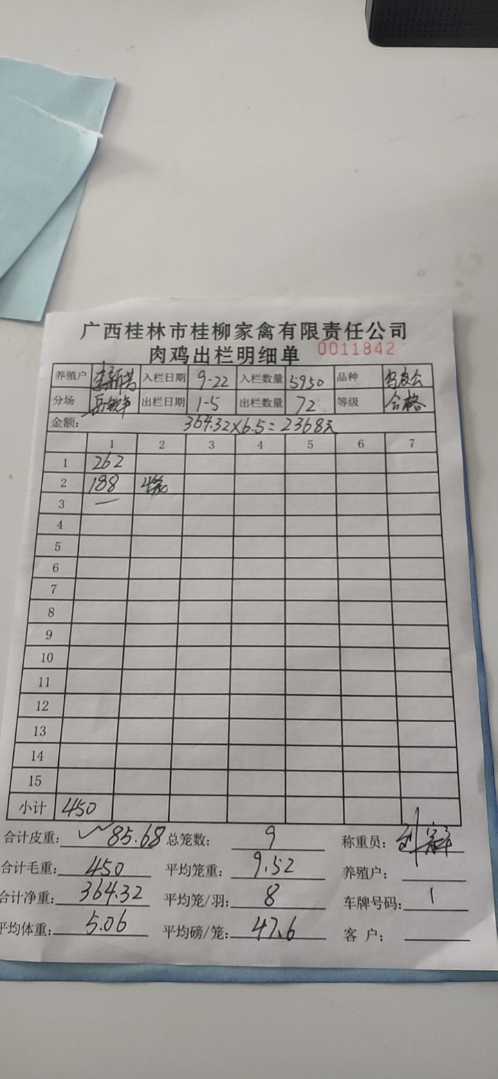 广西桂林市桂柳家禽有限责任公司
肉鸡出栏明细单 0011842
养殖户 入栏日期 9-22 入栏数量 5950 品种
分场 出栏日期 1-5 出栏数量 72 等级 合格
金额: 364.32×6.5=2368元
1 2 3 4 5 6 7
1 262
2 188
3 —
4
5
6
7
8
9
10
11
12
13
14
15
小计 450
合计皮重: 85.68 总笼数: 9 称重员:
合计毛重: 450 平均笼重: 9.52 养殖户:
合计净重: 364.32 平均笼/羽: 8 车牌号码: 1
平均体重: 5.06 平均磅/笼: 47.6 客 户: